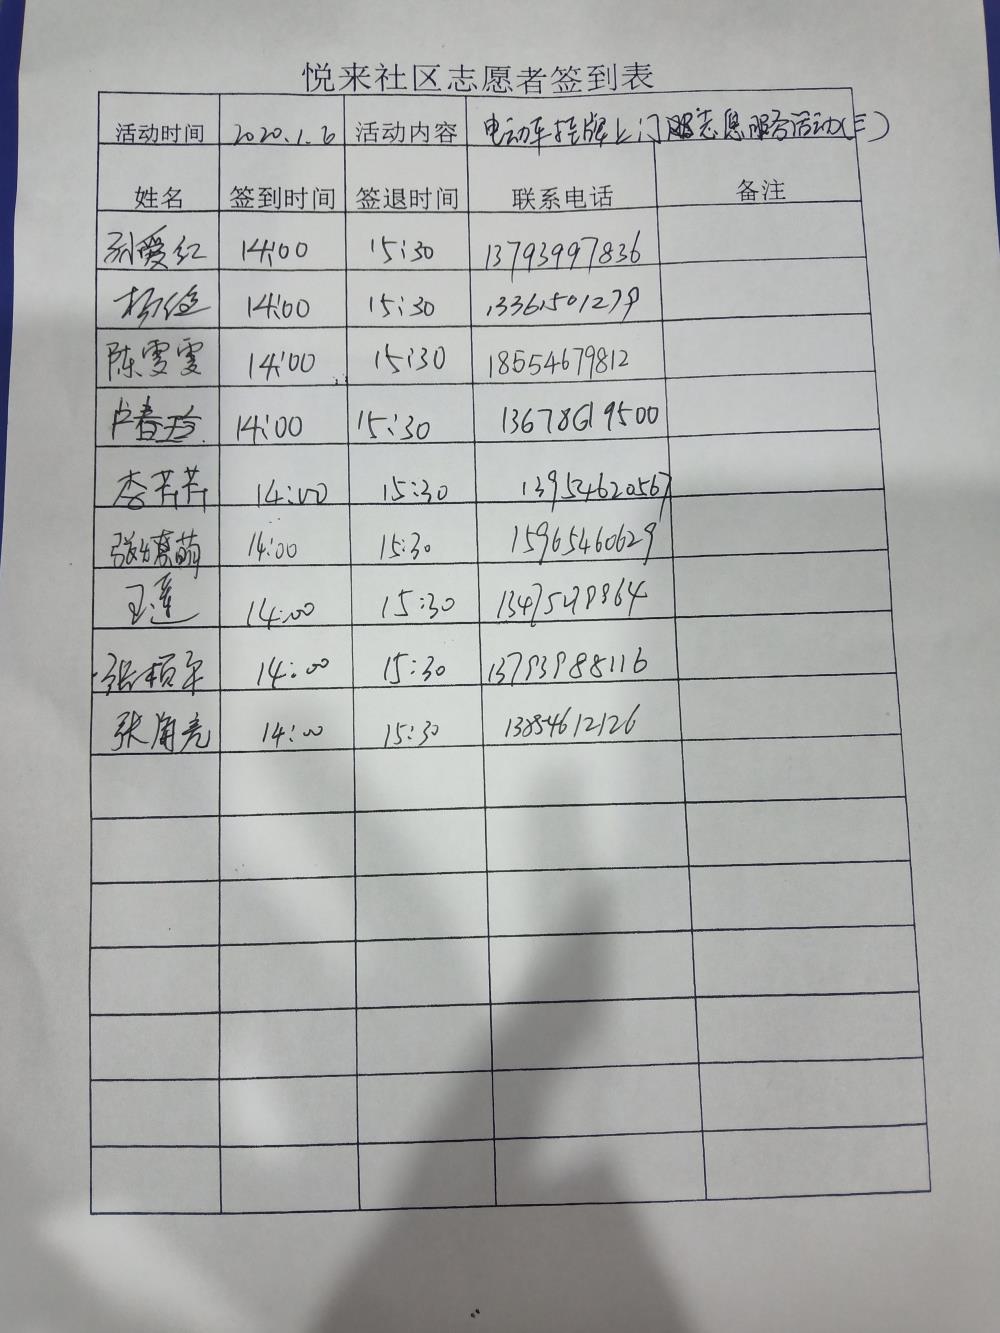 悦来社区志愿者签到表
活动时间 2020.1.6 活动内容 电动车挂牌上门志愿服务活动(三)
姓名 签到时间 签退时间 联系电话 备注
孙爱红 14:00 15:30 13793997836
杨俊 14:00 15:30 13361501279
陈雯雯 14:00 15:30 18554679812
卢春玲 14:00 15:30 13678619500
李芳芳 14:00 15:30 13954620567
张 萌 14:00 15:30 15965460629
王莲 14:00 15:30
张 14:00 15:30 13793988116
张 亮 14:00 15:30 13854612126